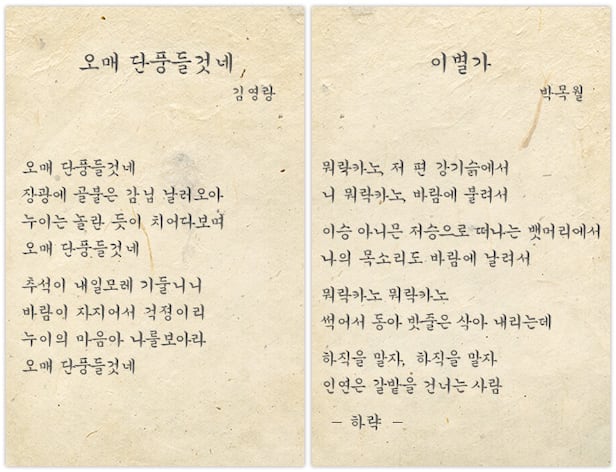 오매 단풍들것네
김영랑
오매 단풍들것네
장광에 골불은 감닙 날러오아
누이는 놀란 듯이 치어다보며
오매 단풍들것네
추석이 내일모레 기둘니니
바람이 자지어서 걱정이리
누이의 마음아 나를보아라
오매 단풍들것네
이별가
박목월
뭐락카노, 저 편 강기슭에서
니 뭐락카노, 바람에 불려서
이승 아니믄 저승으로 떠나는 뱃머리에서
나의 목소리도 바람에 날려서
뭐락카노 뭐락카노
썩어서 동아 밧줄은 삭아 내리는데
하직을 말자, 하직을 말자
인연은 갈밭을 건너는 사람
– 하략 –